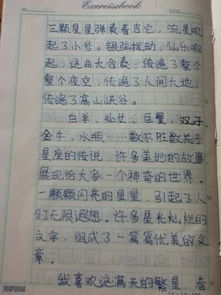 Exercisebook
三颗星星弹奏着吉它,流星吹
起了小号。银弦拨动,仙乐响
起,这曲大合奏,传遍了整个
整个夜空,传遍了人间大地,
传遍了高山峡谷。
白羊、仙女、巨蟹、双子
金牛、水瓶、一数不胜数关于
星座的传说,许多美妙的故事
展现给大家一个神奇的世界。
一颗颗闪亮的星星,引起了人
们无限遐想。许多星长灿烂的
文字,组成了一篇篇优美的文
章。
我喜欢这满天的繁星,奇